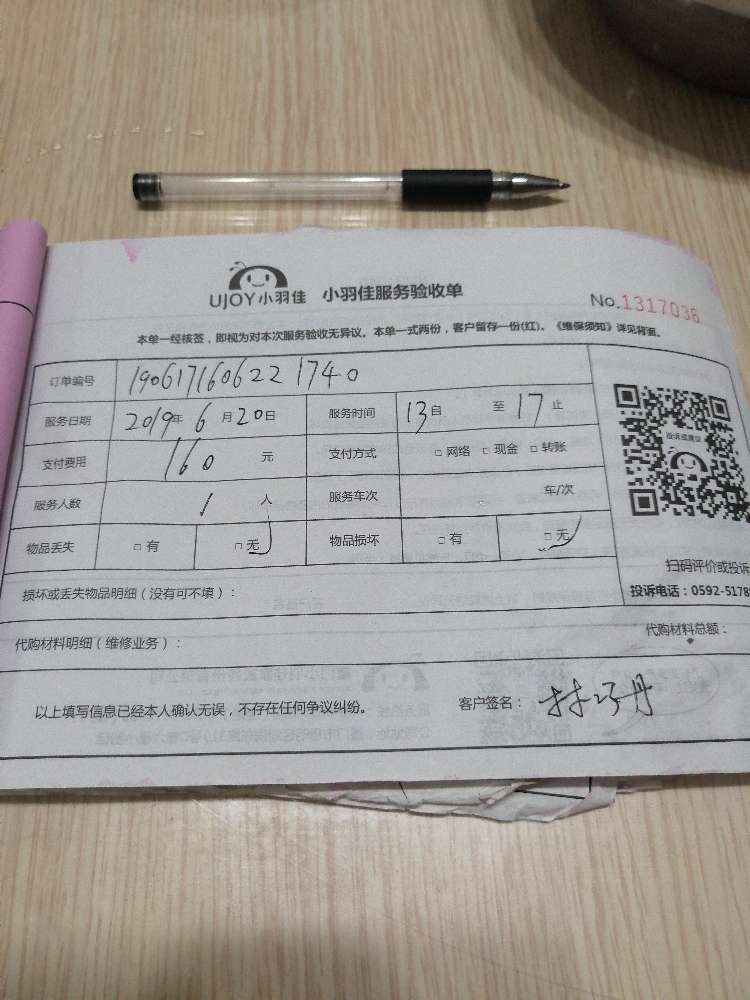 UJOY小羽佳 小羽佳服务验收单
No.1317036
本单一经核签，即视为对本次服务验收无异议。本单一式两份，客户留存一份(红)。《维保须知》详见背面。
订单编号 190617160622 1740
服务日期 2019年 6月20日 服务时间 13自 至 17止
支付费用 160 元 支付方式 □网络 □现金 □转账
服务人数 1 人 服务车次 车/次
物品丢失 □有 □无 物品损坏 □有 □无
投诉或建议
扫码评价或投诉
损坏或丢失物品明细（没有可不填）：
投诉电话：0592-5178
代购材料明细（维修业务）： 代购材料总额：
以上填写信息已经本人确认无误，不存在任何争议纠纷。 客户签名：林巧丹